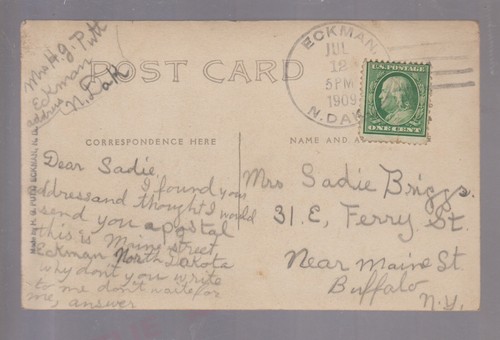 Mrs H. J. Putt
Eckman
address N. Dak
POST CARD
ECKMAN,
JUL
12
5PM
1909
N. DAK
U.S. POSTAGE
ONE CENT
CORRESPONDENCE HERE
NAME AND A
Dear Sadie
I found your
address and thought I would
send you a postal
this is Main street
Eckman North Dakota
why dont you write
to me dont waite for
me, answer
Mrs Sadie Briggs.
31. E, Ferry St.
Near Maine St
Buffalo
N.Y.
ECKMAN, N. D.